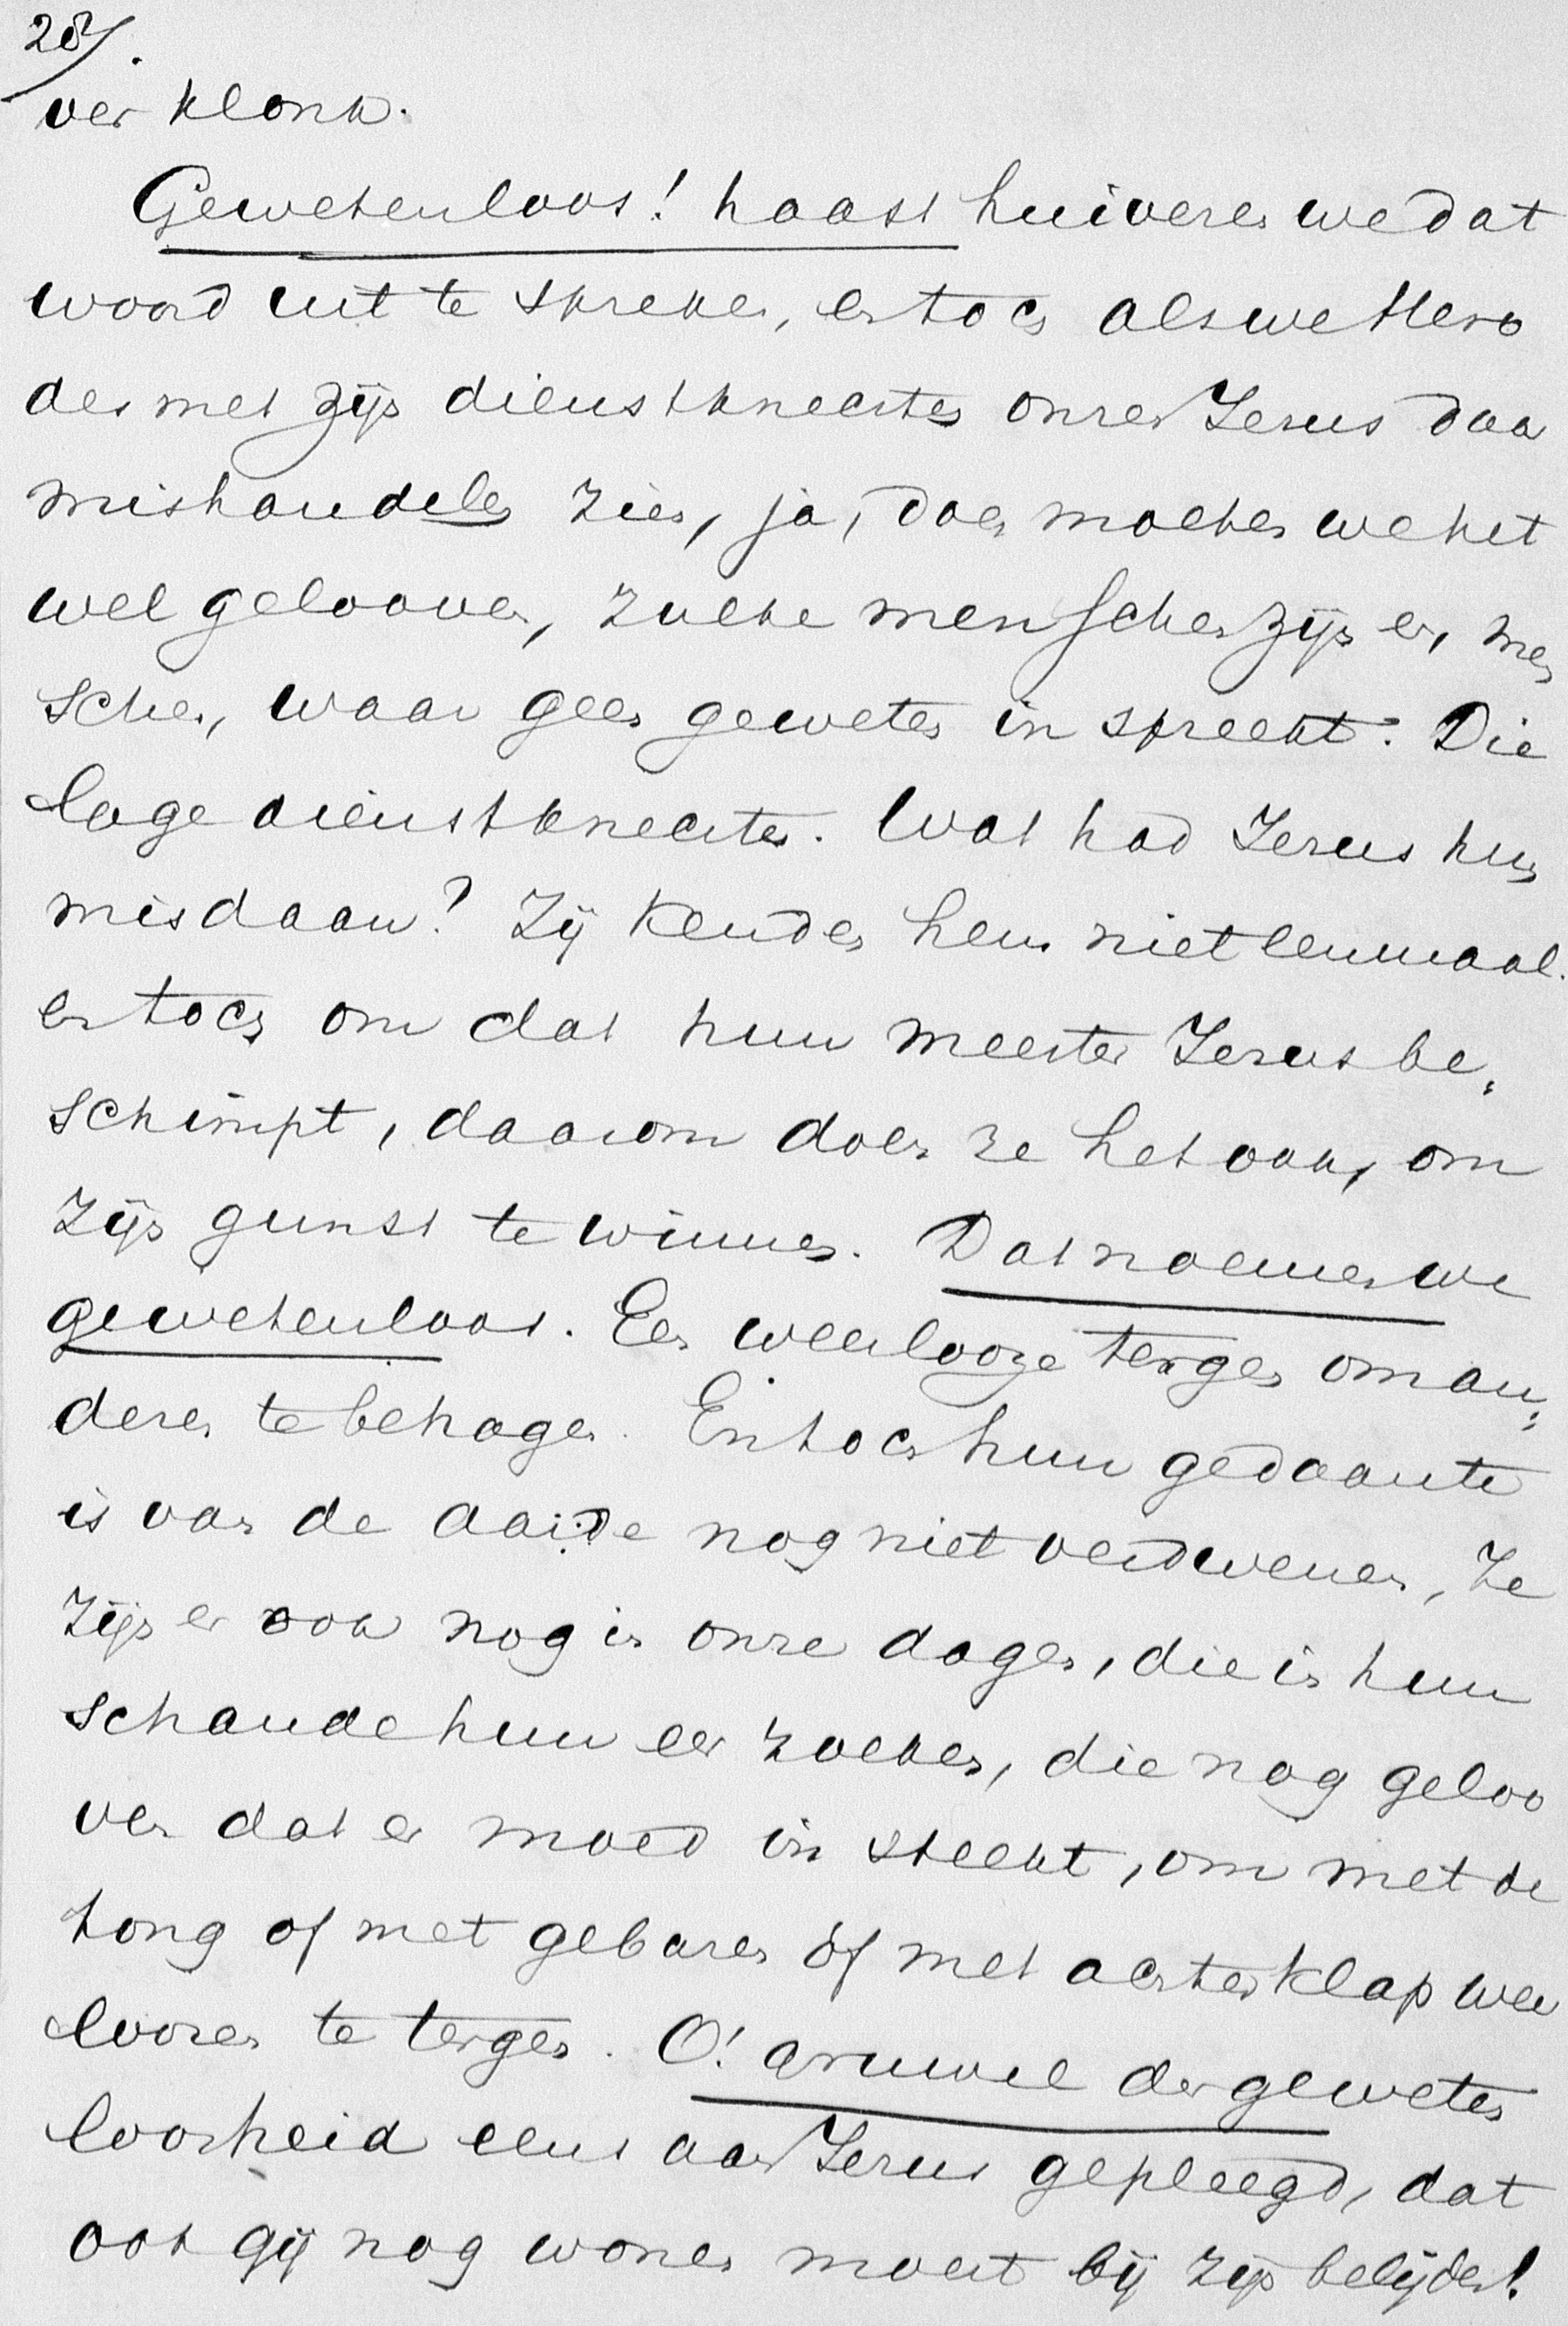 28/.
ver klonk.
Gewetenloos! haast huiveren we dat
woord uit te spreken, en toch als we Hero
des met zijn dienstknechten onzen Jezus daar
mishandelen zien, ja, dan moeten we het
wel gelooven, zulke menschen zijn er, men
schen, waar geen geweten in spreekt. Die
lage dienstknechten. Wat had Jezus hun
misdaan? Zij kenden hem niet eenmaal.
en toch om dat hun meester Jezus be„
schimpt, daarom doen ze het ook, om
zijn gunst te winnen. Dat noemen we
gewetenloos. Een weerlooze tergen om an„
deren te behagen. En toch hun gedaante
is van de aarde nog niet verdwenen, Ze
zijn er ook nog in onze dagen, die in hun
schande hun eer zoeken, die nog geloo
ven dat er moed in steekt, om met de
tong of met gebaren óf met achterklap weer
loozen te tergen. O! gruwel der geweten
loosheid eens aan Jezus gepleegd, dat
ook gij nog wonen moest bij zijn belijders!